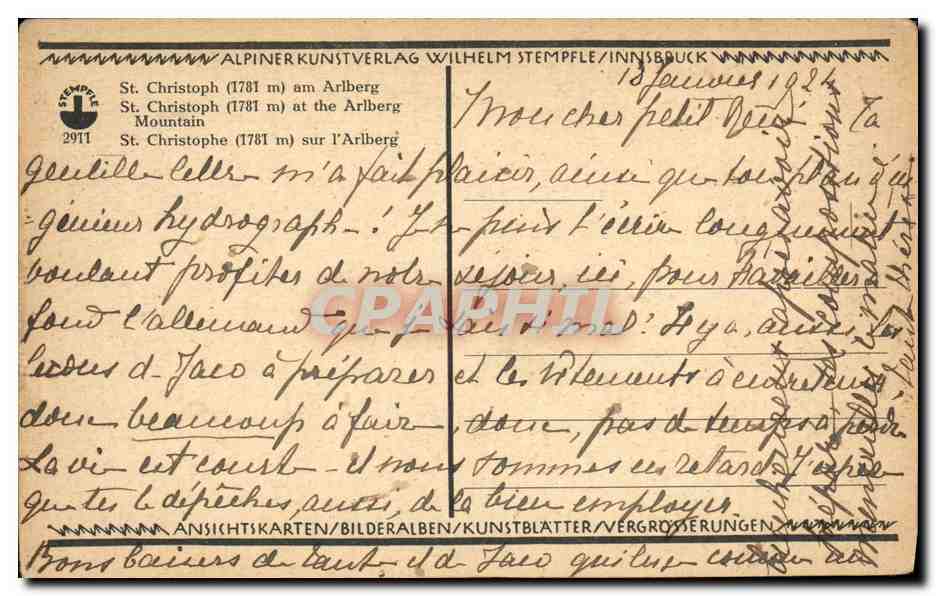 ALPINER KUNSTVERLAG WILHELM STEMPFLE/INNSBRUCK
STEMPFLE
2911
St. Christoph (1781 m) am Arlberg
St. Christoph (1781 m) at the Arlberg
Mountain
St. Christophe (1781 m) sur l'Arlberg
18 Janvier 1924
Mon cher petit René Ta
gentille lettre m'a fait plaisir, ainsi que ton plan d'in
génieur hydrographe! Je ne puis t'écrire longuement
voulant profiter de notre séjour, ici, pour travailler à
fond l'allemand que je sais si mal! Il y a, aussi, les
leçons de Jaco à préparer et les vêtements à entretenir
donc beaucoup à faire, donc, pas de temps à perdre
La vie est courte et nous sommes en retard. J'espère
que tu te dépêches, aussi, de la bien employer.
CPAPHIL
ANSICHTSKARTEN/BILDERALBEN/KUNSTBLÄTTER/VERGRÖSSERUNGEN
Bons baisers de Tante et de Jaco qui lise comme au
tes compositions
mensuelles